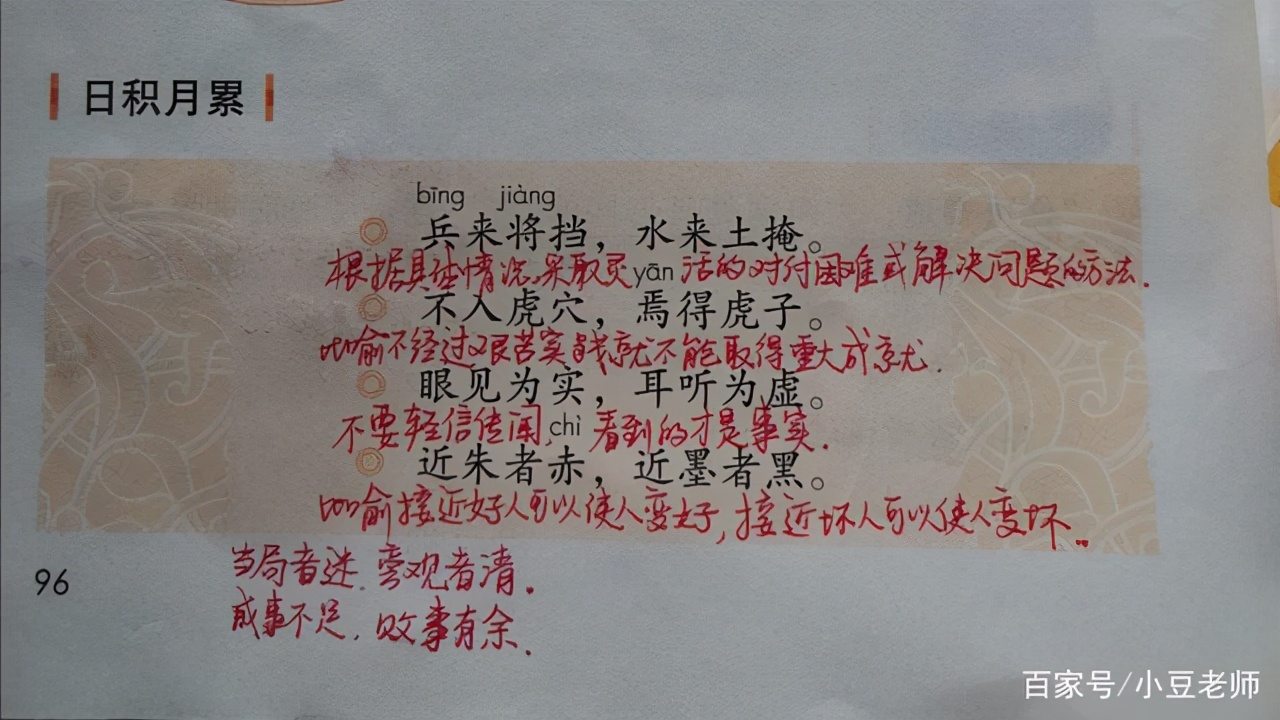 日积月累
bīng jiàng
兵来将挡，水来土掩。
根据具体情况,采取灵活的对付困难或解决问题的方法.
yān
不入虎穴，焉得虎子。
比喻不经过艰苦实践,就不能取得重大成就.
眼见为实，耳听为虚。
不要轻信传闻,看到的才是事实.
chì
近朱者赤，近墨者黑。
比喻接近好人可以使人变好,接近坏人可以使人变坏..
当局者迷.旁观者清.
成事不足,败事有余.
96
百家号/小豆老师